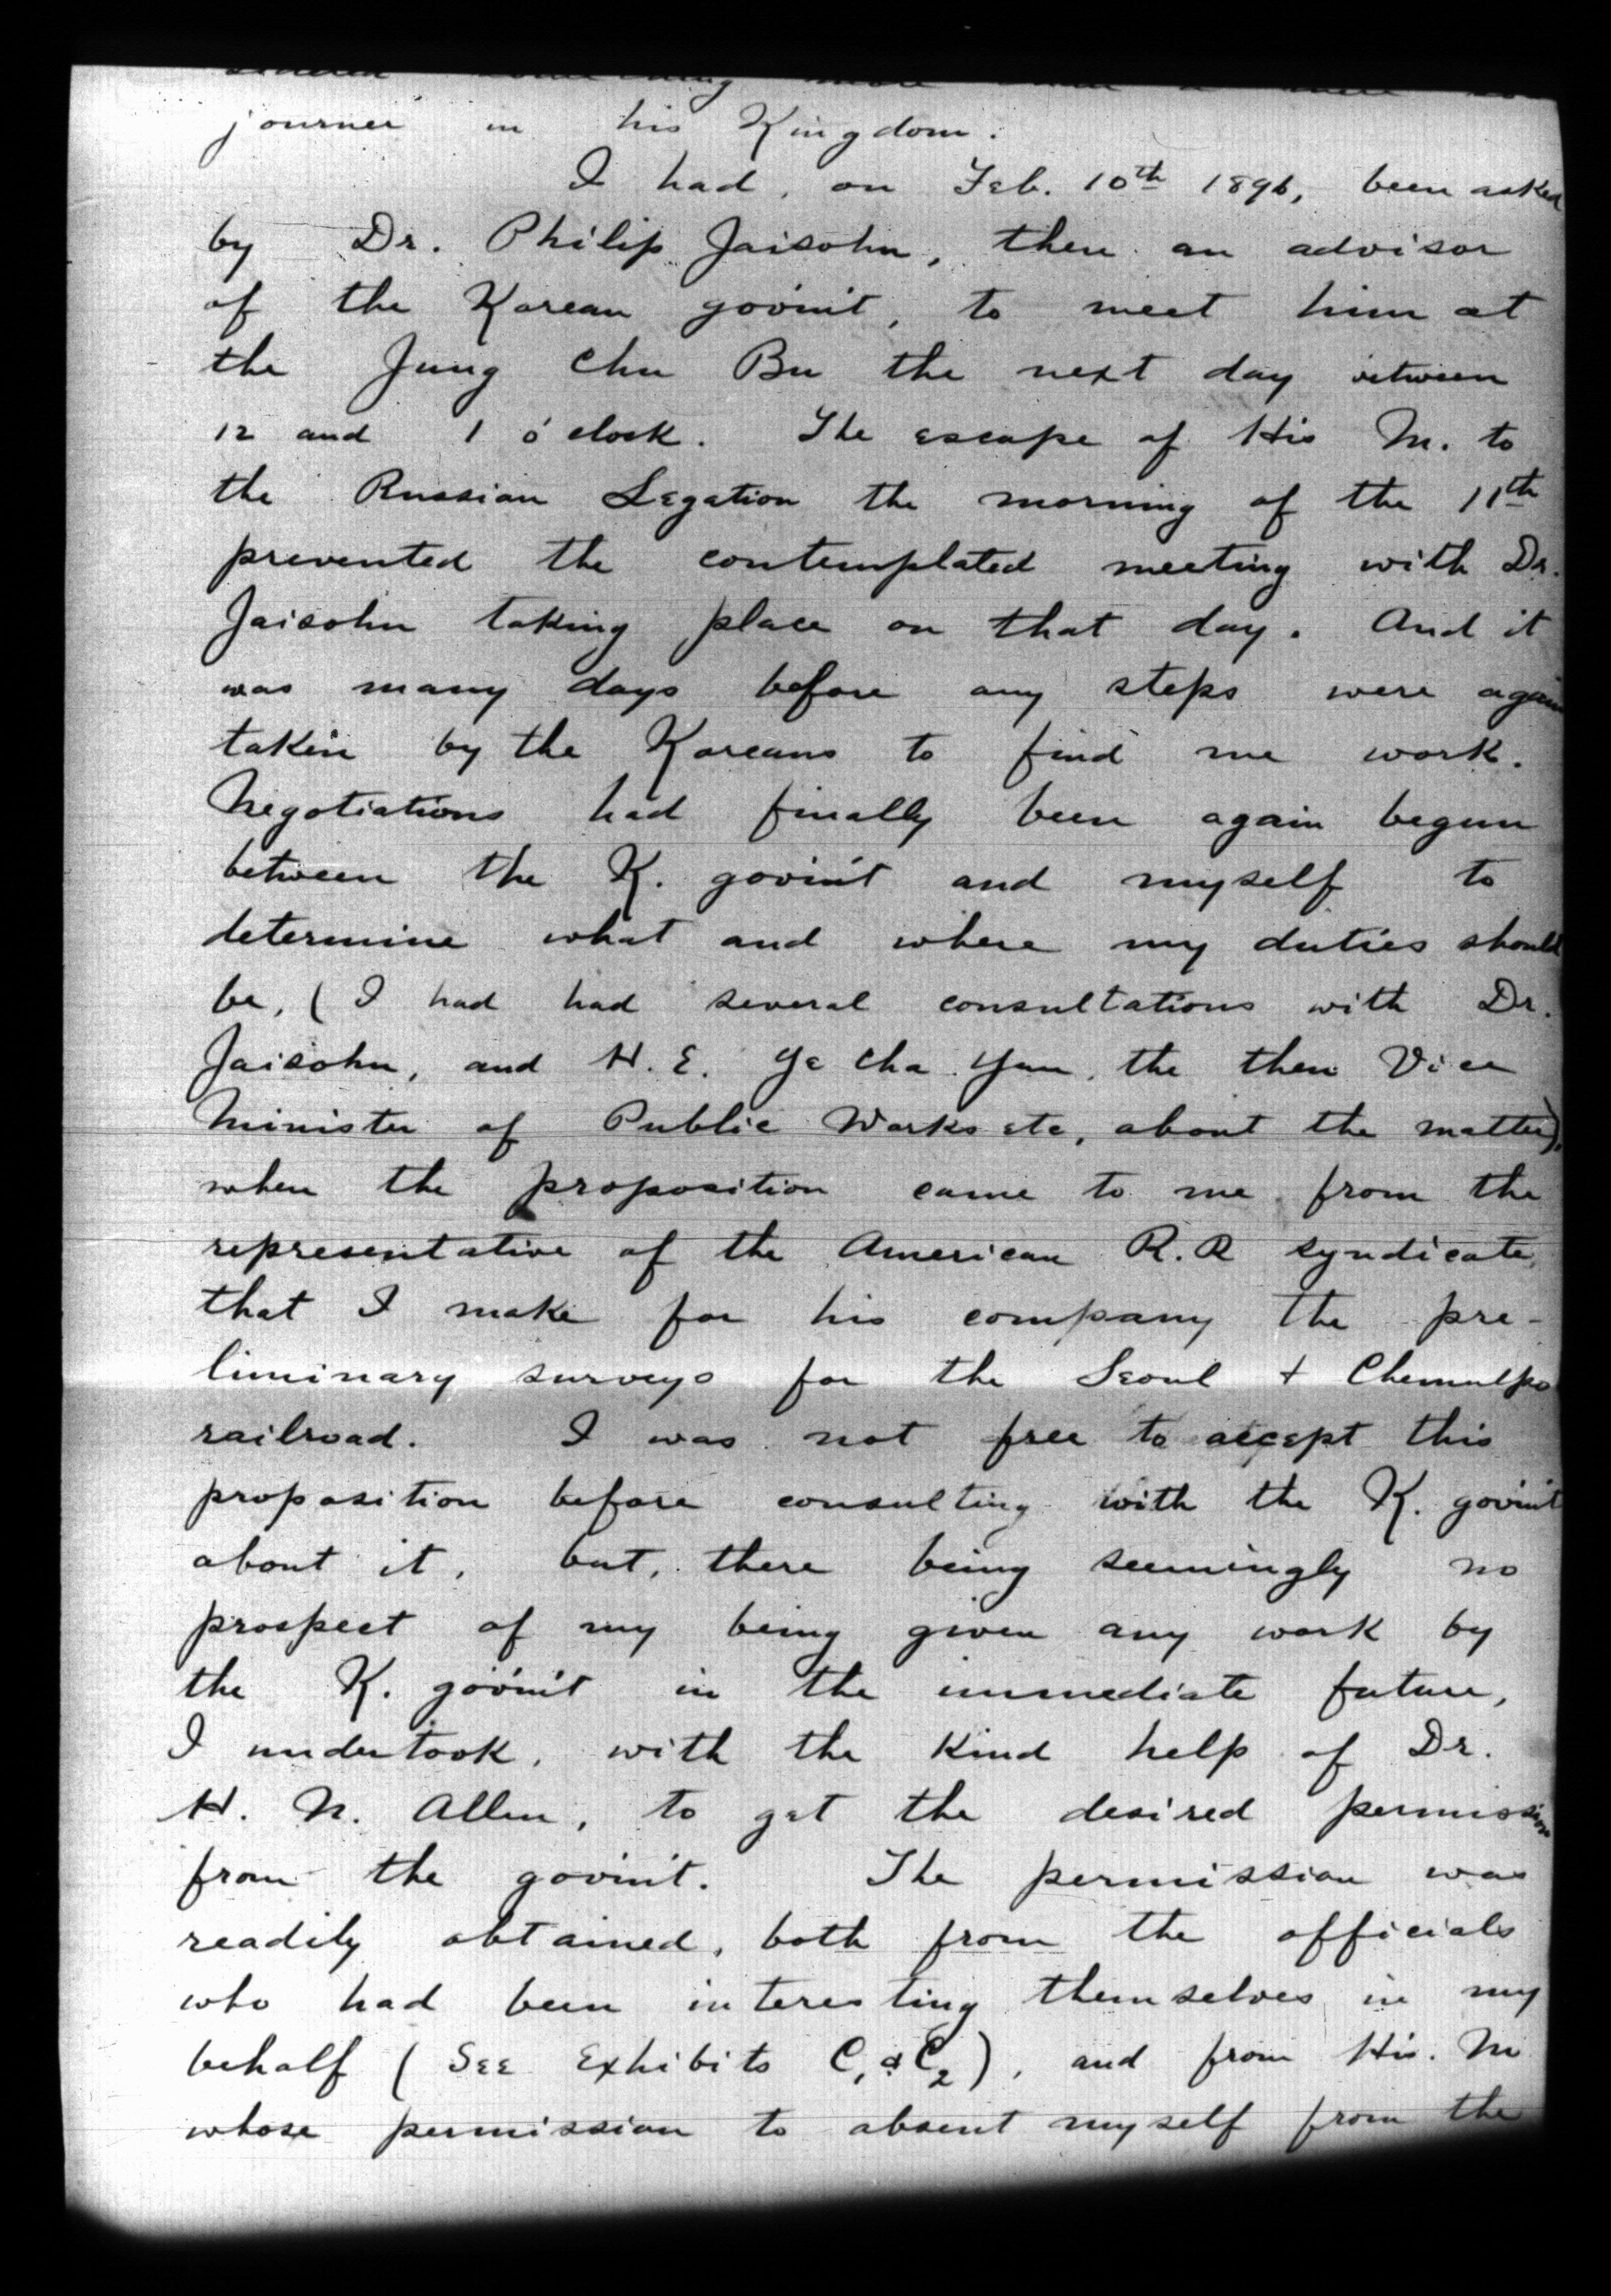 journer in his Kingdom.
I had, on Feb. 10th 1896, been asked
by Dr. Philip Jaisohn, then an advisor
of the Korean gov'n't, to meet him at
the Jung Chu Bu the next day between
12 and 1 o'clock. The escape of His M. to
the Russian Legation the morning of the 11th
prevented the contemplated meeting with Dr.
Jaisohn taking place on that day. And it
was many days before any steps were again
taken by the Koreans to find me work.
Negotiations had finally been again begun
between the K. gov'n't and myself to
determine what and where my duties should
be, (I had had several consultations with Dr.
Jaisohn, and H. E. Ye Cha Yun, the then Vice
Minister of Public Works etc, about the matter),
when the proposition came to me from the
representative of the American R.R syndicate,
that I make for his company the pre-
liminary surveys for the Seoul + Chemulpo
railroad. I was not free to accept this
proposition before consulting with the K. gov'n't
about it, but, there being seemingly no
prospect of my being given any work by
the K. gov'n't in the immediate future,
I undertook, with the kind help of Dr.
H. N. Allen, to get the desired permission
from the gov'n't. The permission was
readily obtained, both from the officials
who had been interesting themselves in my
behalf (See Exhibits C1 & C2), and from His. M
whose permission to absent myself from the